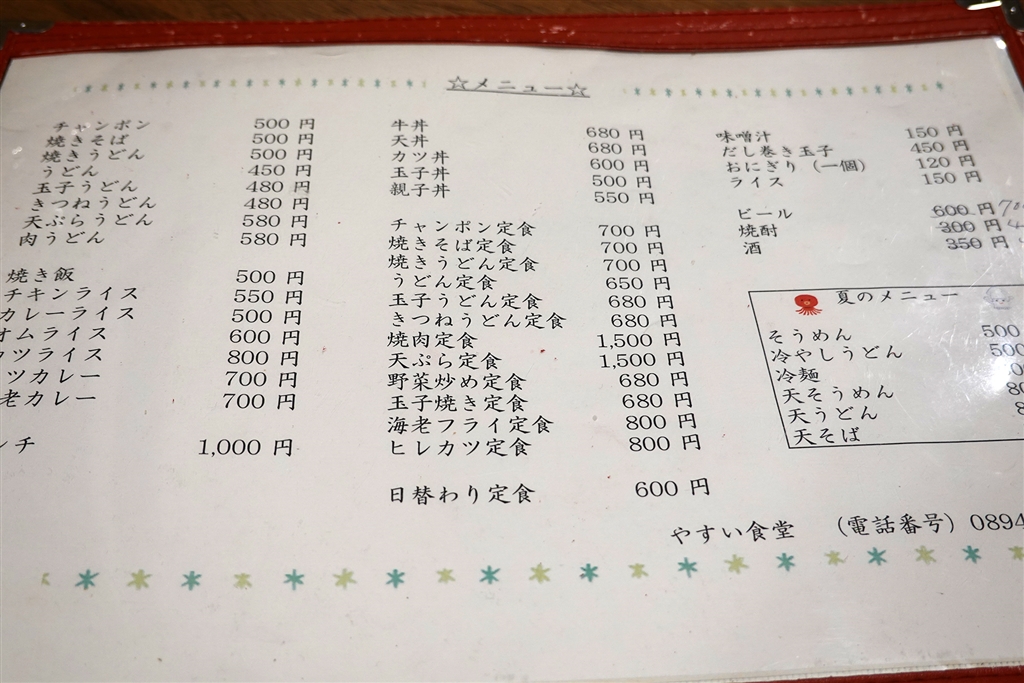 ☆メニュー☆
チャンポン 500 円
焼きそば 500 円
焼きうどん 500 円
うどん 450 円
玉子うどん 480 円
きつねうどん 480 円
天ぷらうどん 580 円
肉うどん 580 円
焼き飯 500 円
チキンライス 550 円
カレーライス 500 円
オムライス 600 円
ツライス 800 円
ツカレー 700 円
老カレー 700 円
ンチ 1,000 円
牛丼 680 円
天丼 680 円
カツ丼 600 円
玉子丼 500 円
親子丼 550 円
チャンポン定食 700 円
焼きそば定食 700 円
焼きうどん定食 700 円
うどん定食 650 円
玉子うどん定食 680 円
きつねうどん定食 680 円
焼肉定食 1,500 円
天ぷら定食 1,500 円
野菜炒め定食 680 円
玉子焼き定食 680 円
海老フライ定食 800 円
ヒレカツ定食 800 円
日替わり定食 600 円
味噌汁 150 円
だし巻き玉子 450 円
おにぎり（一個） 120 円
ライス 150 円
ビール 600 円 70
焼酎 300 円
酒 350 円
夏のメニュー
そうめん 500
冷やしうどん 500
冷麺
天そうめん
天うどん
天そば
やすい食堂 （電話番号）0894